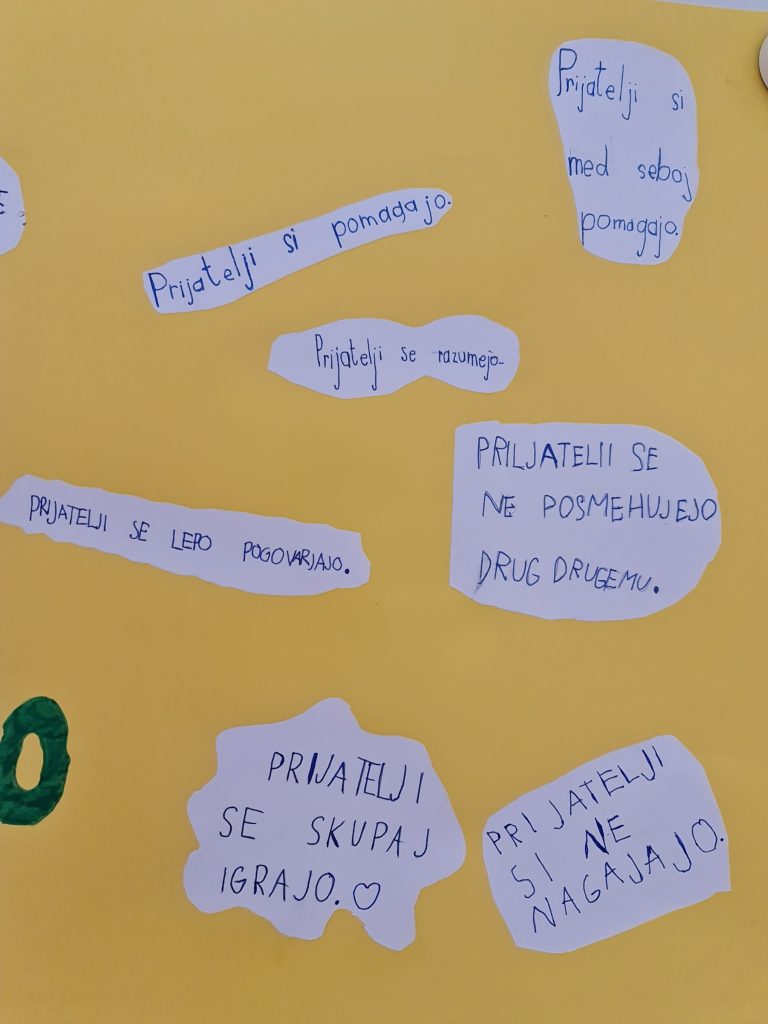 Prijatelji si
med seboj
pomagajo.
Prijatelji si pomagajo.
Prijatelji se razumejo.
PRIJATELJI SE LEPO POGOVARJAJO.
PRILJATELII SE
NE POSMEHUJEJO
DRUG DRUGEMU.
PRIJATELJI
SE SKUPAJ
IGRAJO.♡
PRIJATELJI
SI NE
NAGAJAJO.
O